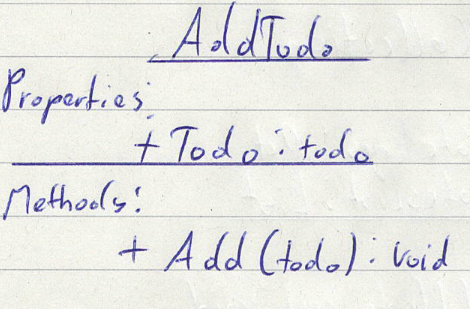 AddTodo
Properties:
+ Todo : todo
Methods:
+ Add (todo) : void